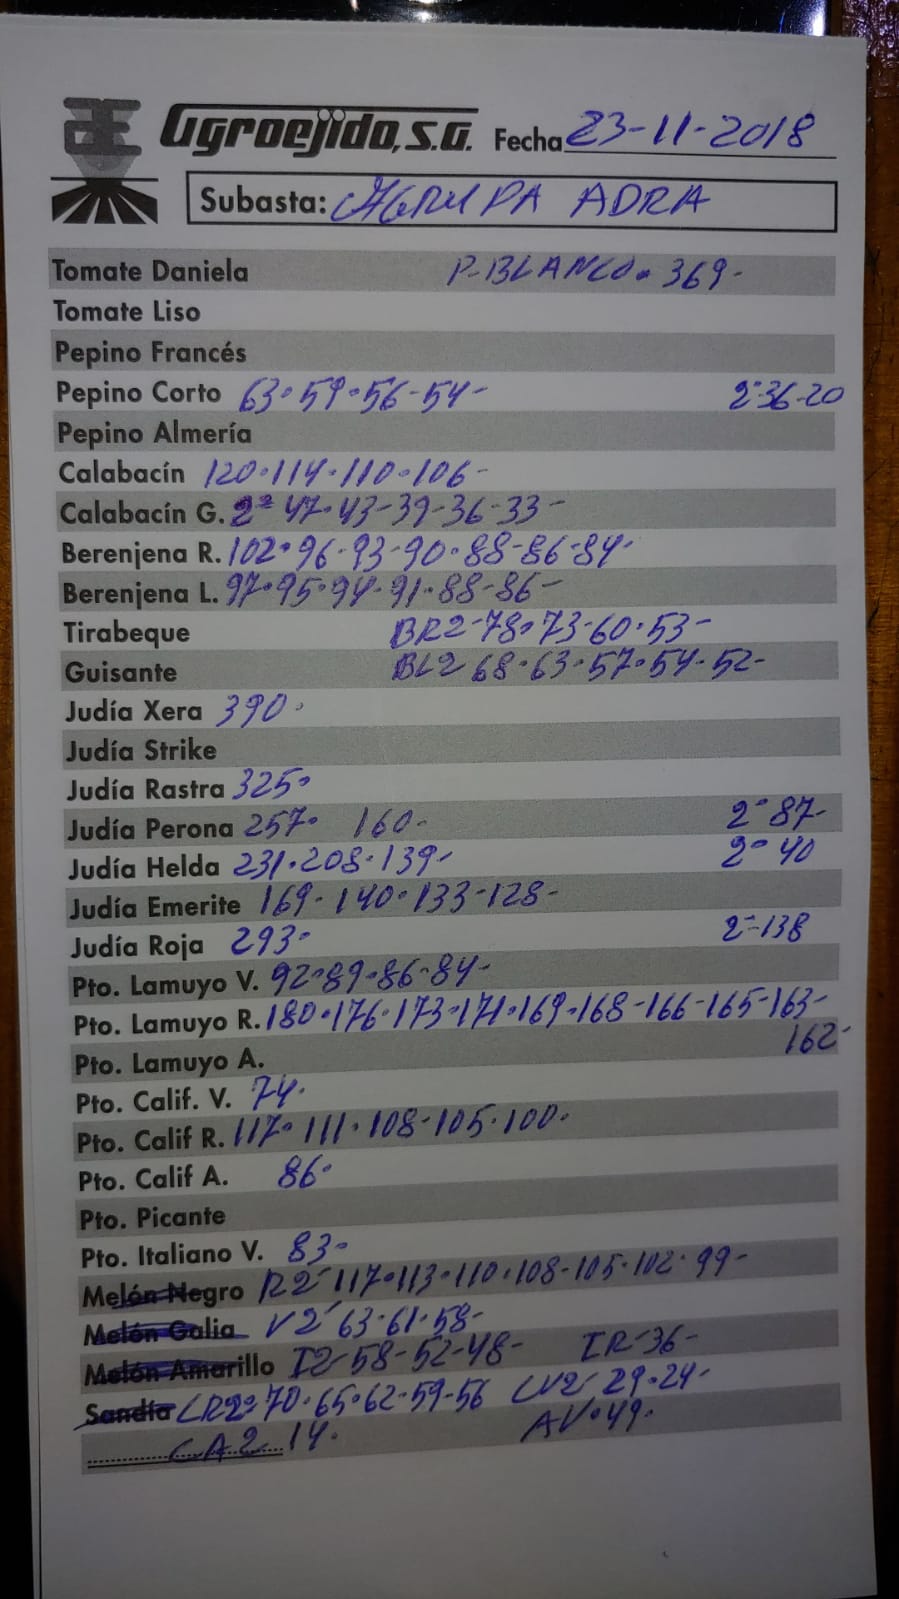 Agroejido, S.A. Fecha 23-11-2018
Subasta: AGRUPA ADRA
Tomate Daniela P-BLANCO. 369-
Tomate Liso
Pepino Francés
Pepino Corto 63-59-56-54- 2ª36-20
Pepino Almería
Calabacín 120-114-110-106-
Calabacín G. 2ª 47-43-39-36-33-
Berenjena R. 102-96-93-90-88-86-84-
Berenjena L. 97-95-94-91-88-86-
Tirabeque BR2-78-73-60-53-
Guisante BL2 68-63-57-54-52-
Judía Xera 390-
Judía Strike
Judía Rastra 325-
Judía Perona 257- 160- 2ª 87-
Judía Helda 231-208-139- 2ª 40
Judía Emerite 169-140-133-128-
Judía Roja 293- 2ª-138
Pto. Lamuyo V. 92-89-86-84-
Pto. Lamuyo R. 180-176-173-171-169-168-166-165-163-
Pto. Lamuyo A. 162-
Pto. Calif. V. 74-
Pto. Calif R. 117-111-108-105-100-
Pto. Calif A. 86-
Pto. Picante
Pto. Italiano V. 83-
Melón Negro R2ª 117-113-110-108-105-102-99-
Melón Galia V2ª 63-61-58-
Melón Amarillo I2-58-52-48- IR-36-
Sandía CR2ª 70-65-62-59-56 CV2 29-24-
CA2 14- AV-49-